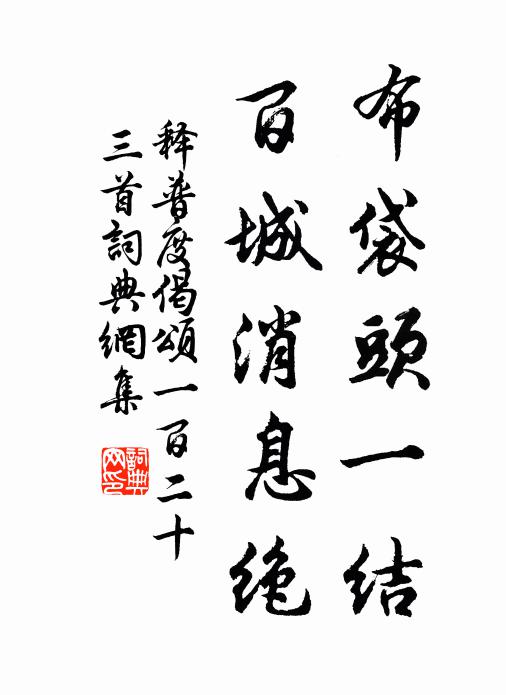 布袋頭一结
百城消息绝
释普度偈頌一百二十
三首詞典網集
詞典
网印